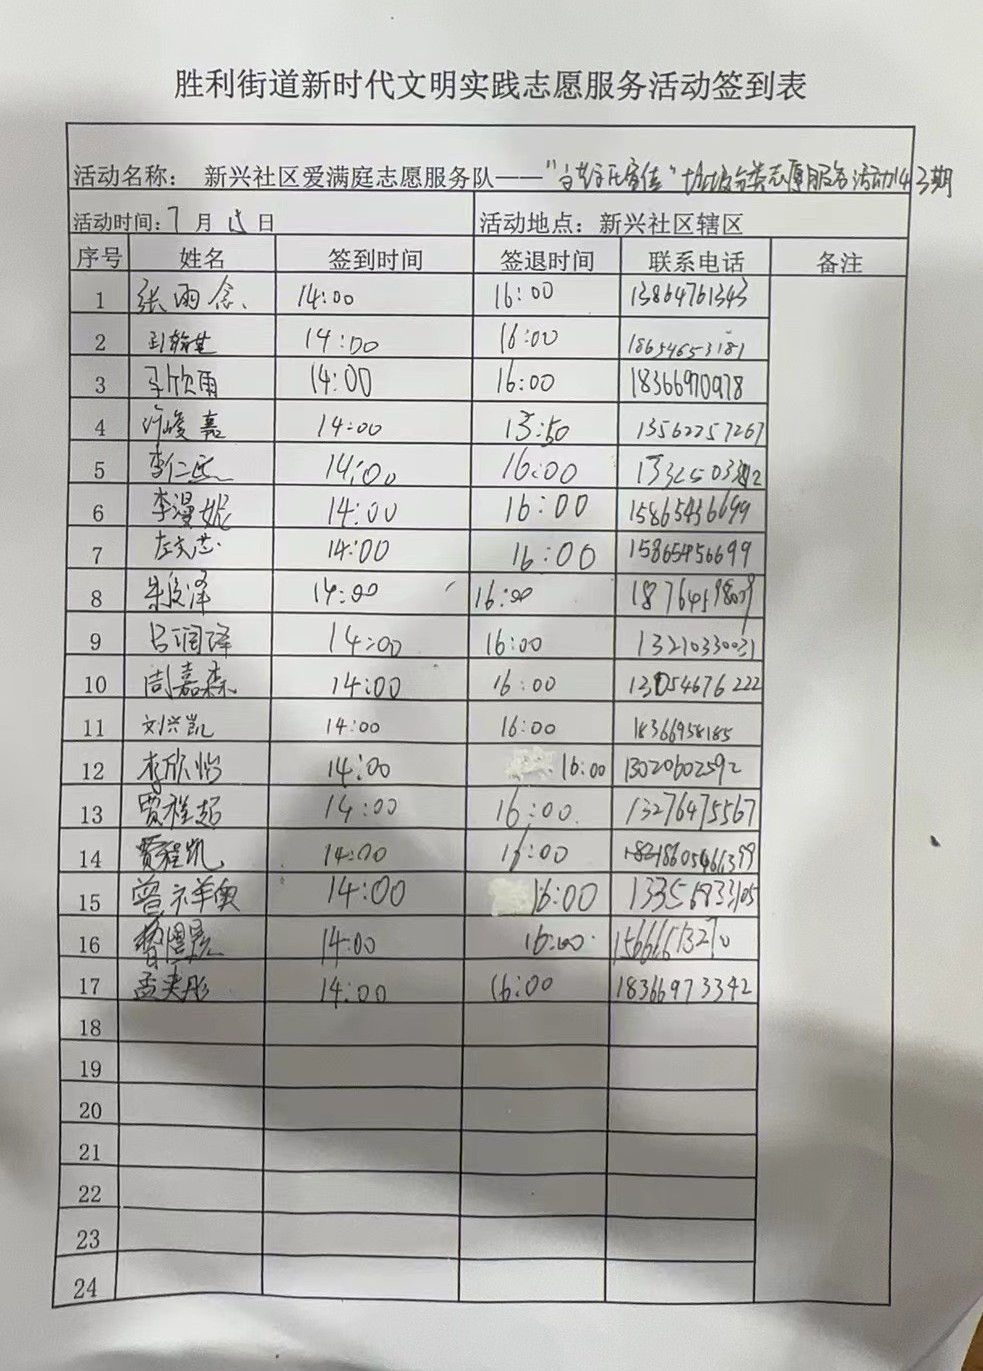 胜利街道新时代文明实践志愿服务活动签到表
活动名称： 新兴社区爱满庭志愿服务队——" "垃圾分类志愿服务活动143期
活动时间:7月 日 活动地点：新兴社区辖区
序号 姓名 签到时间 签退时间 联系电话 备注
1 张雨念 14:00 16:00 13864761343
2 14:00 16:00 18654653181
3 欣雨 14:00 16:00 18366970978
4 许峻嘉 14:00 13:50 13562257267
5 李仁 14:00 16:00
6 李漫妮 14:00 16:00 15865436699
7 左文芯 14:00 16:00 15865456699
8 朱俊泽 14:00 16:00
9 吕润泽 14:00 16:00 13210330031
10 周嘉森 14:00 16:00 13054676222
11 刘兴凯 14:00 16:00 18366958185
12 李欣怡 14:00 16:00 13020602592
13 贾程超 14:00 16:00 13276475567
14 贾程凯 14:00 16:00 18605461399
15 曾祥奥 14:00 16:00 13356833105
16 14:00 16:00
17 孟奕彤 14:00 16:00 18366973342
18
19
20
21
22
23
24